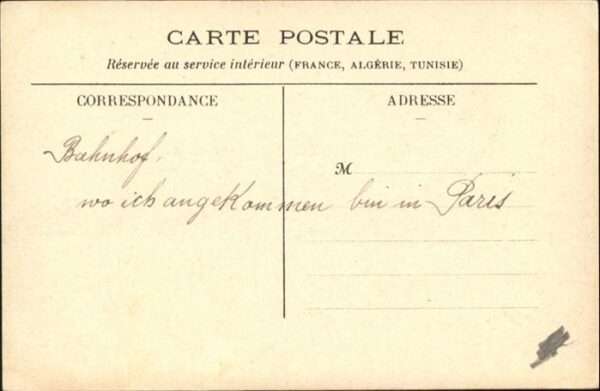 CARTE POSTALE
Réservée au service intérieur (FRANCE, ALGÉRIE, TUNISIE)
CORRESPONDANCE
ADRESSE
Bahnhof.
M
wo ich angekommen bin in Paris